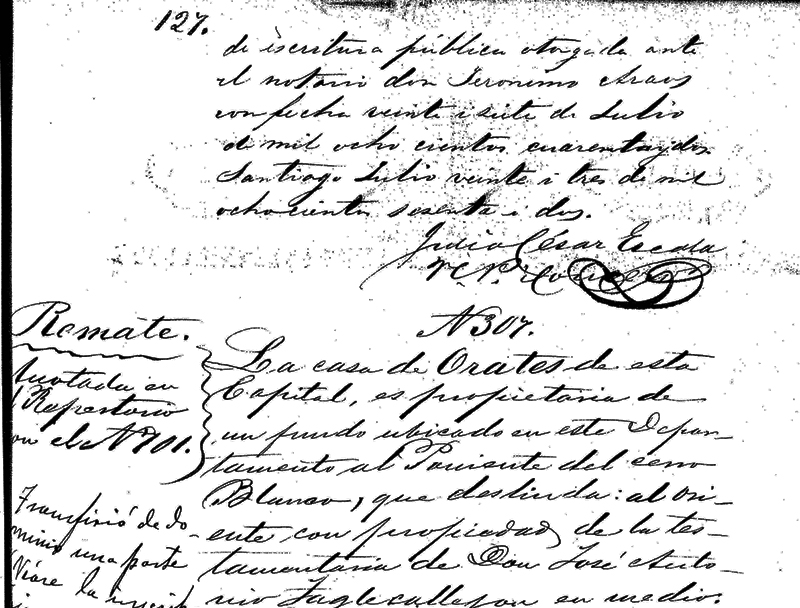 127.
de escritura pública otorgada ante
el notario don Jeronimo Araos
con fecha veinte i siete de Julio
de mil ocho cientos cuarenta y dos.
Santiago Julio veinte i tres de mil
ochocientos sesenta i dos.
Julio César Escala
N 307.
Remate.
Anotada en
Repertorio
el N 701.
La casa de Orates de esta
Capital, es propietaria de
un fundo ubicado en este Depar-
tamento al Poniente del cerro
Blanco, que deslinda: al Ori-
ente con propiedad de la tes-
tamentaria de Don José Anto-
nio callejon en medio;
Transfirió de do-
minio una parte
Véase la